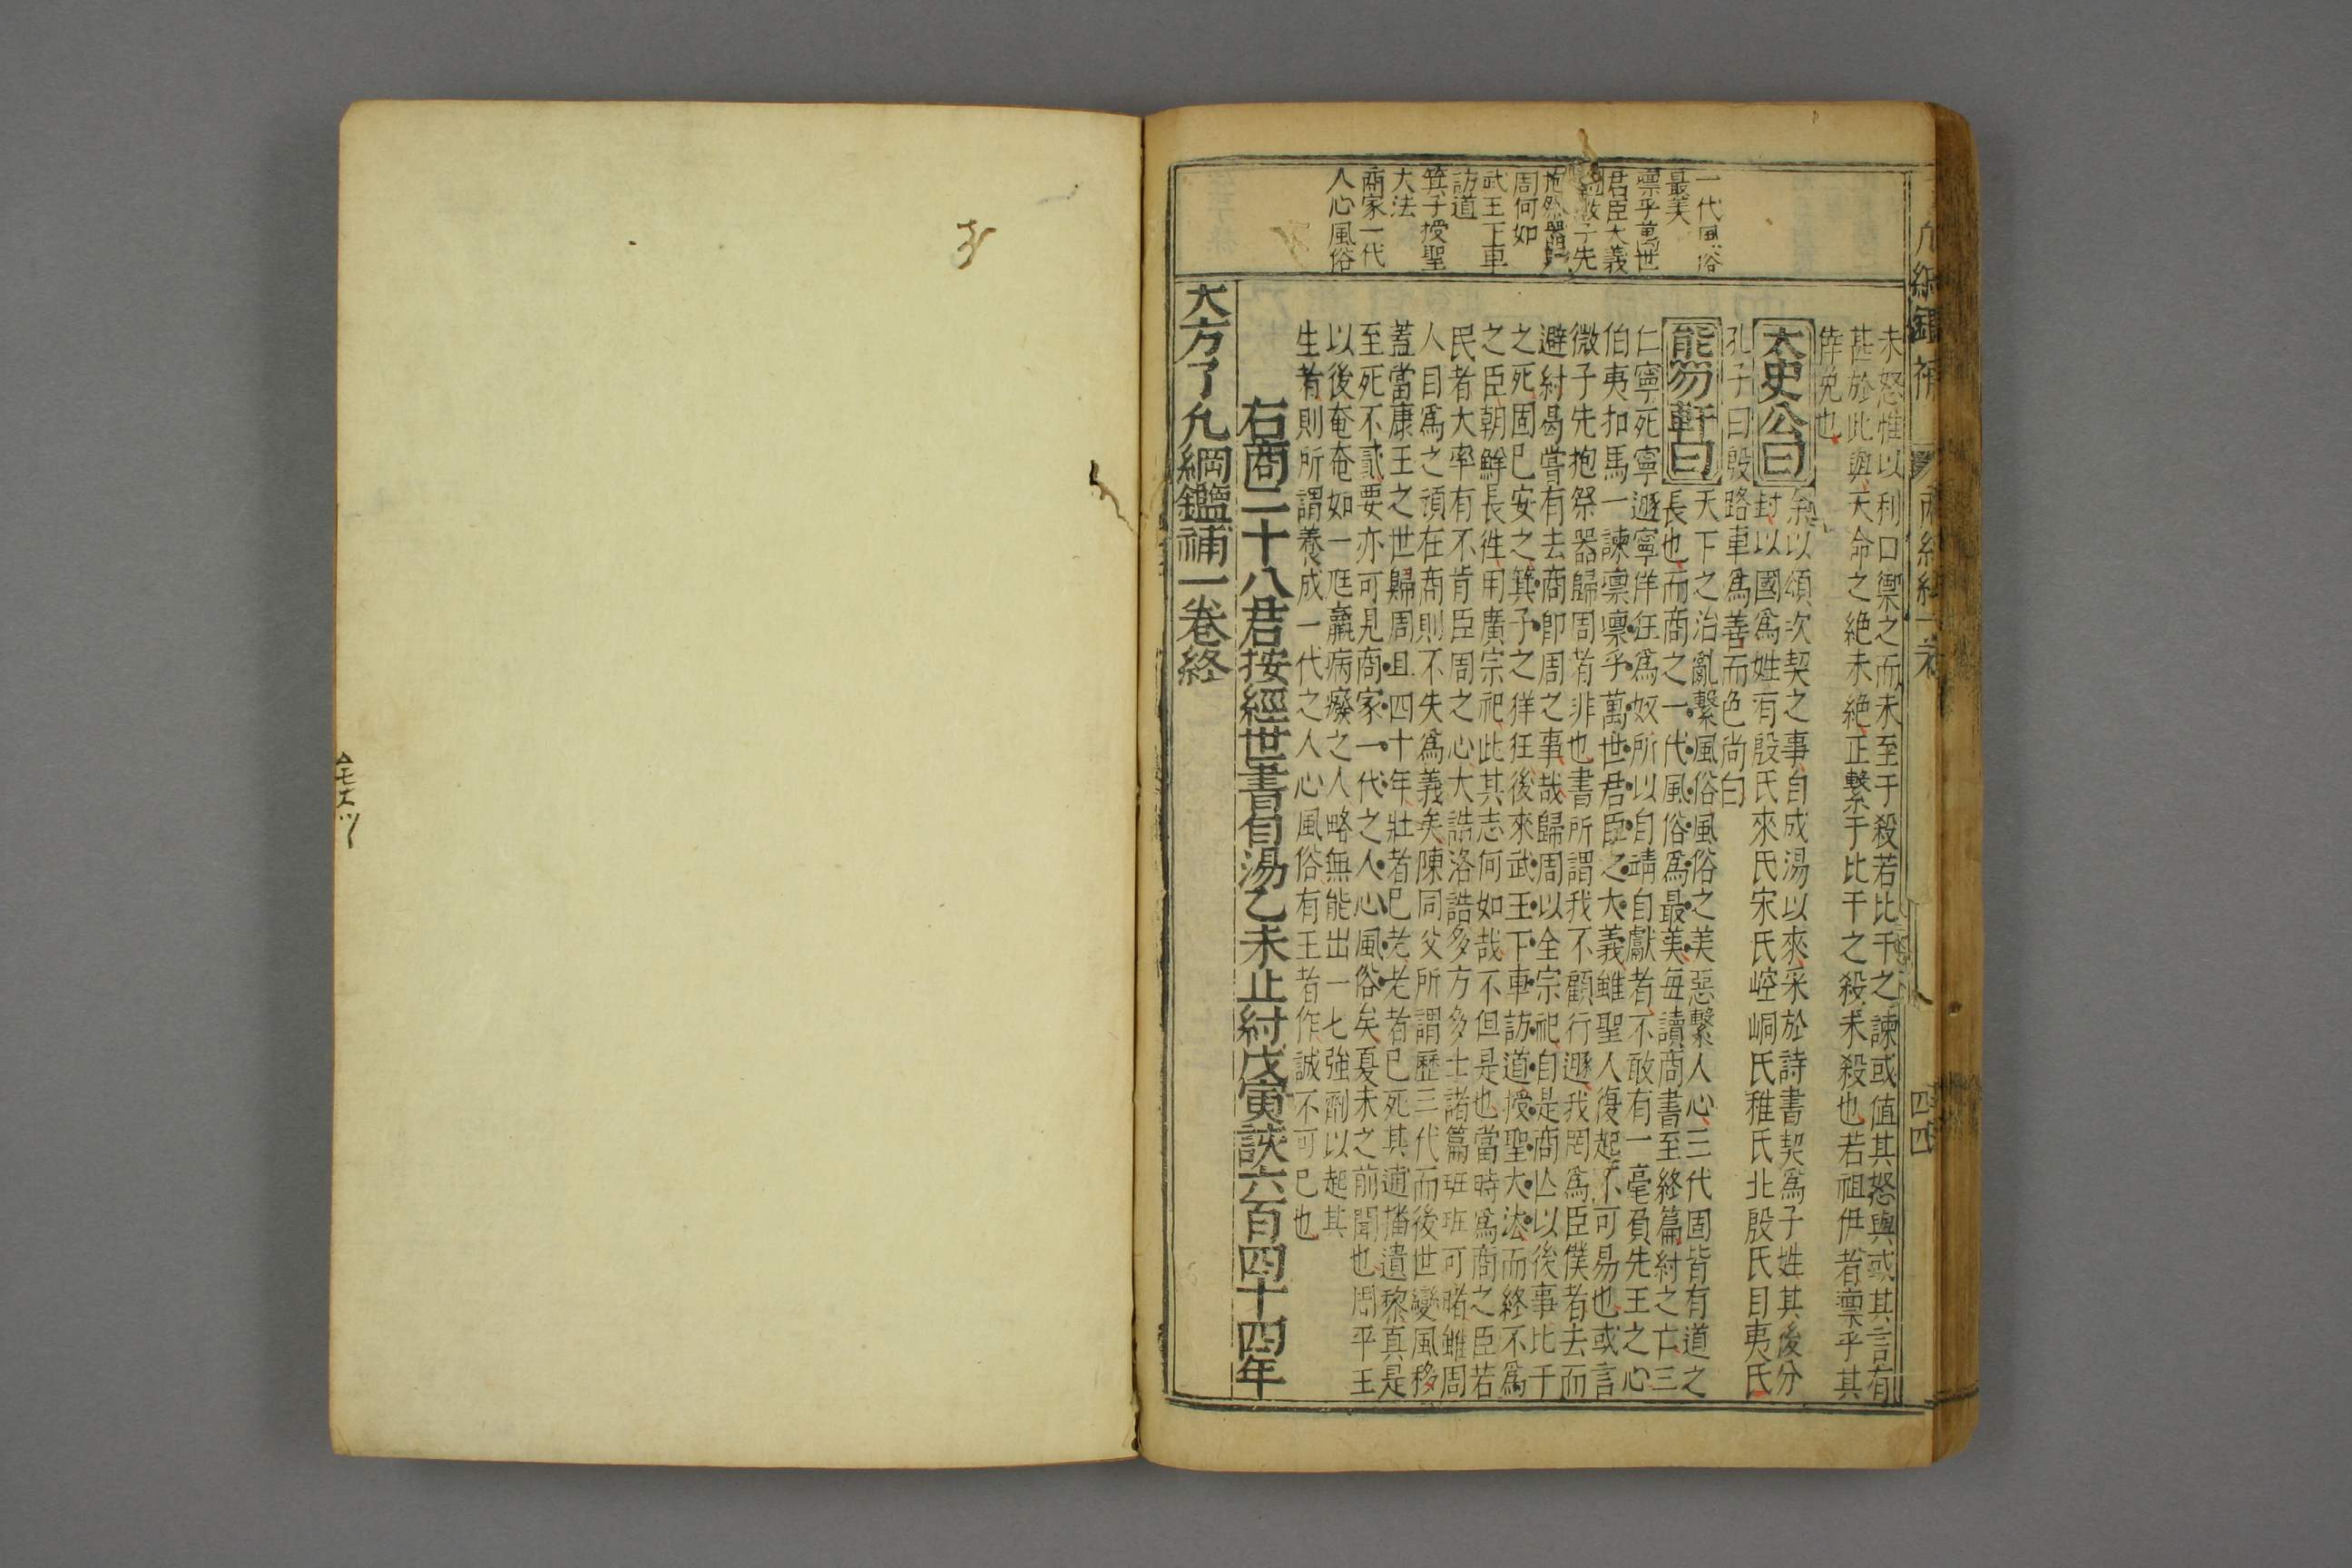 未怒惟以利口禦之而未至于殺若比干之諫或值其怒與或其言有
甚於此與天命之絶未絶正繫于比干之殺未殺也若祖伊者禀乎其
倖免也
太史公曰
余以頌次契之事自成湯以來采於詩書契爲子姓其後分
封以國爲姓有殷氏來氏宋氏崆峒氏稚氏北殷氏目夷氏
孔子曰殷路車爲善而色尚白
熊勿軒曰
天下之治亂繫風俗風俗之美惡繫人心三代固皆有道之
長也而商之一代風俗爲最美每讀商書至終篇紂之亡三
仁寧死寧遯寧佯狂爲奴所以自靖自獻者不敢有一毫負先王之心
伯夷扣馬一諫凛凛乎萬世君臣之大義雖聖人復起不可易也或言
微子先抱祭器歸周者非也書所謂我不顧行遯我罔爲臣僕者去而
避紂曷嘗有去商卽周之事哉歸周以全宗祀自是商亾以後事比干
之死固已安之箕子之佯狂後來武王下車訪道授聖大法而終不爲
之臣朝鮮長徃用廣宗祀此其志何如哉不但是也當時爲商之臣若
民者大率有不肯臣周之心大誥洛誥多方多士諸篇班班可睹雖周
人目爲之頑在商則不失爲義矣陳同父所謂歷三代而後世變風移
蓋當康王之世歸周且四十年壯者已老老者已死其逋播遺黎真是
至死不貳要亦可見商家一代之人心風俗矣夏未之前聞也周平王
以後奄奄如一尩羸病癈之人略無能出一七強劑以起其
生者則所謂養成一代之人心風俗有王者作誠不可已也
右商二十八君按經世書自湯乙未止紂戊寅該六百四十四年
大方了凡綱鑑補一卷終
一代風俗
最美
凛乎萬世
君臣大義
周何如
武王下車
訪道
箕子授聖
大法
商家一代
人心風俗
四四